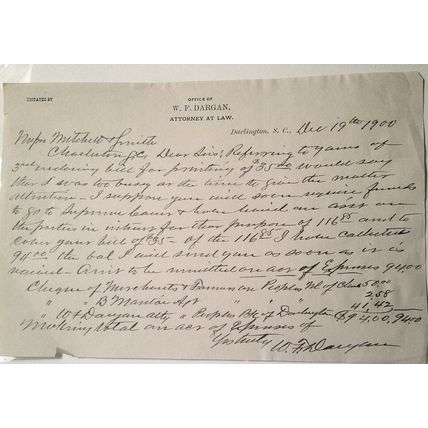 DICTATED BY
OFFICE OF
W. F. DARGAN,
ATTORNEY AT LAW.
Darlington, S. C., Dec 19th 1900
Messrs Mitchell & Smith
Charleston S.C. Dear Sirs; Referring to yours of
3rd enclosing bill for printing of $35.00 would say
that I was too busy at the time to give the matter
attention - I suppose you will soon require funds
to go to Supreme Court & have
the parties in interest for that purpose of 116 85 and to
cover your bill of $35- of the 116 85 I have collected
94 00 the bal I will send you as soon as it is
received - Amt to be remitted on acr of Expenses 94.00
Cheque of Merchants & Farmers on Peoples Nl of Chas 50.00
" " B 2.58
" W F Dargan atty " Peoples Bk of Darlington 41.42
Making total on acr of Expenses of 94.00
Yrs truly W. F. Dargan